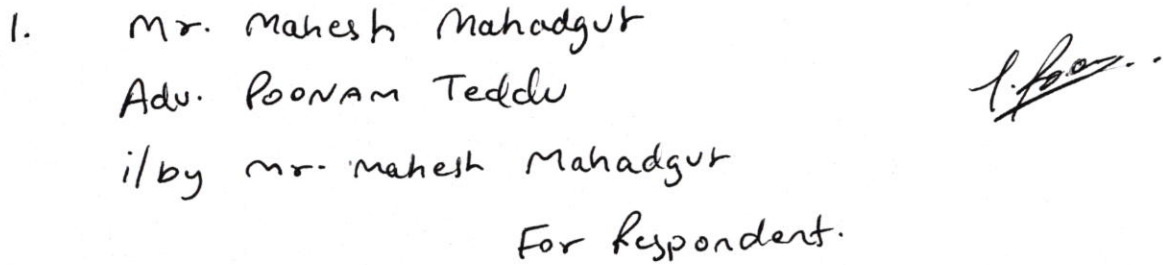 1. Mr. Mahesh Mahadgut
Adv. POONAM Teddu
i/by Mr. Mahesh Mahadgut
For Respondent.